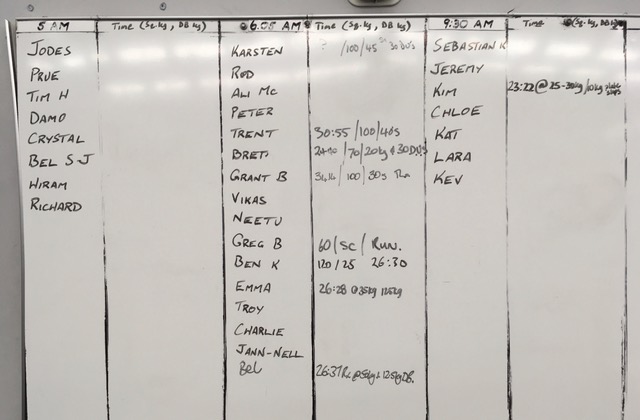 5 AM Time (Sq. kg, DB kg) @ 6.05 AM Time (Sq. kg, DB kg) 9:30 AM Time (Sq. kg, DB kg)
JODES KARSTEN ? /100/45 30 DU'S SEBASTIAN K
PRUE ROD JEREMY
TIM H ALI MC KIM 23:22 @ 25-30kg /10kg
DAMO PETER CHLOE
CRYSTAL TRENT 30:55 /100/40s KAT
BEL S-J BRETT /70/20kg & 30 DU'S LARA
HIRAM GRANT B /100/30s KEV
RICHARD VIKAS
NEETU
GREG B 60/SC/ RUN.
BEN K 120/25 26:30
EMMA 26:28 @35kg 12.5kg
TROY
CHARLIE
JANN-NELL
Bel 26:37 @ 12.5kg DB.